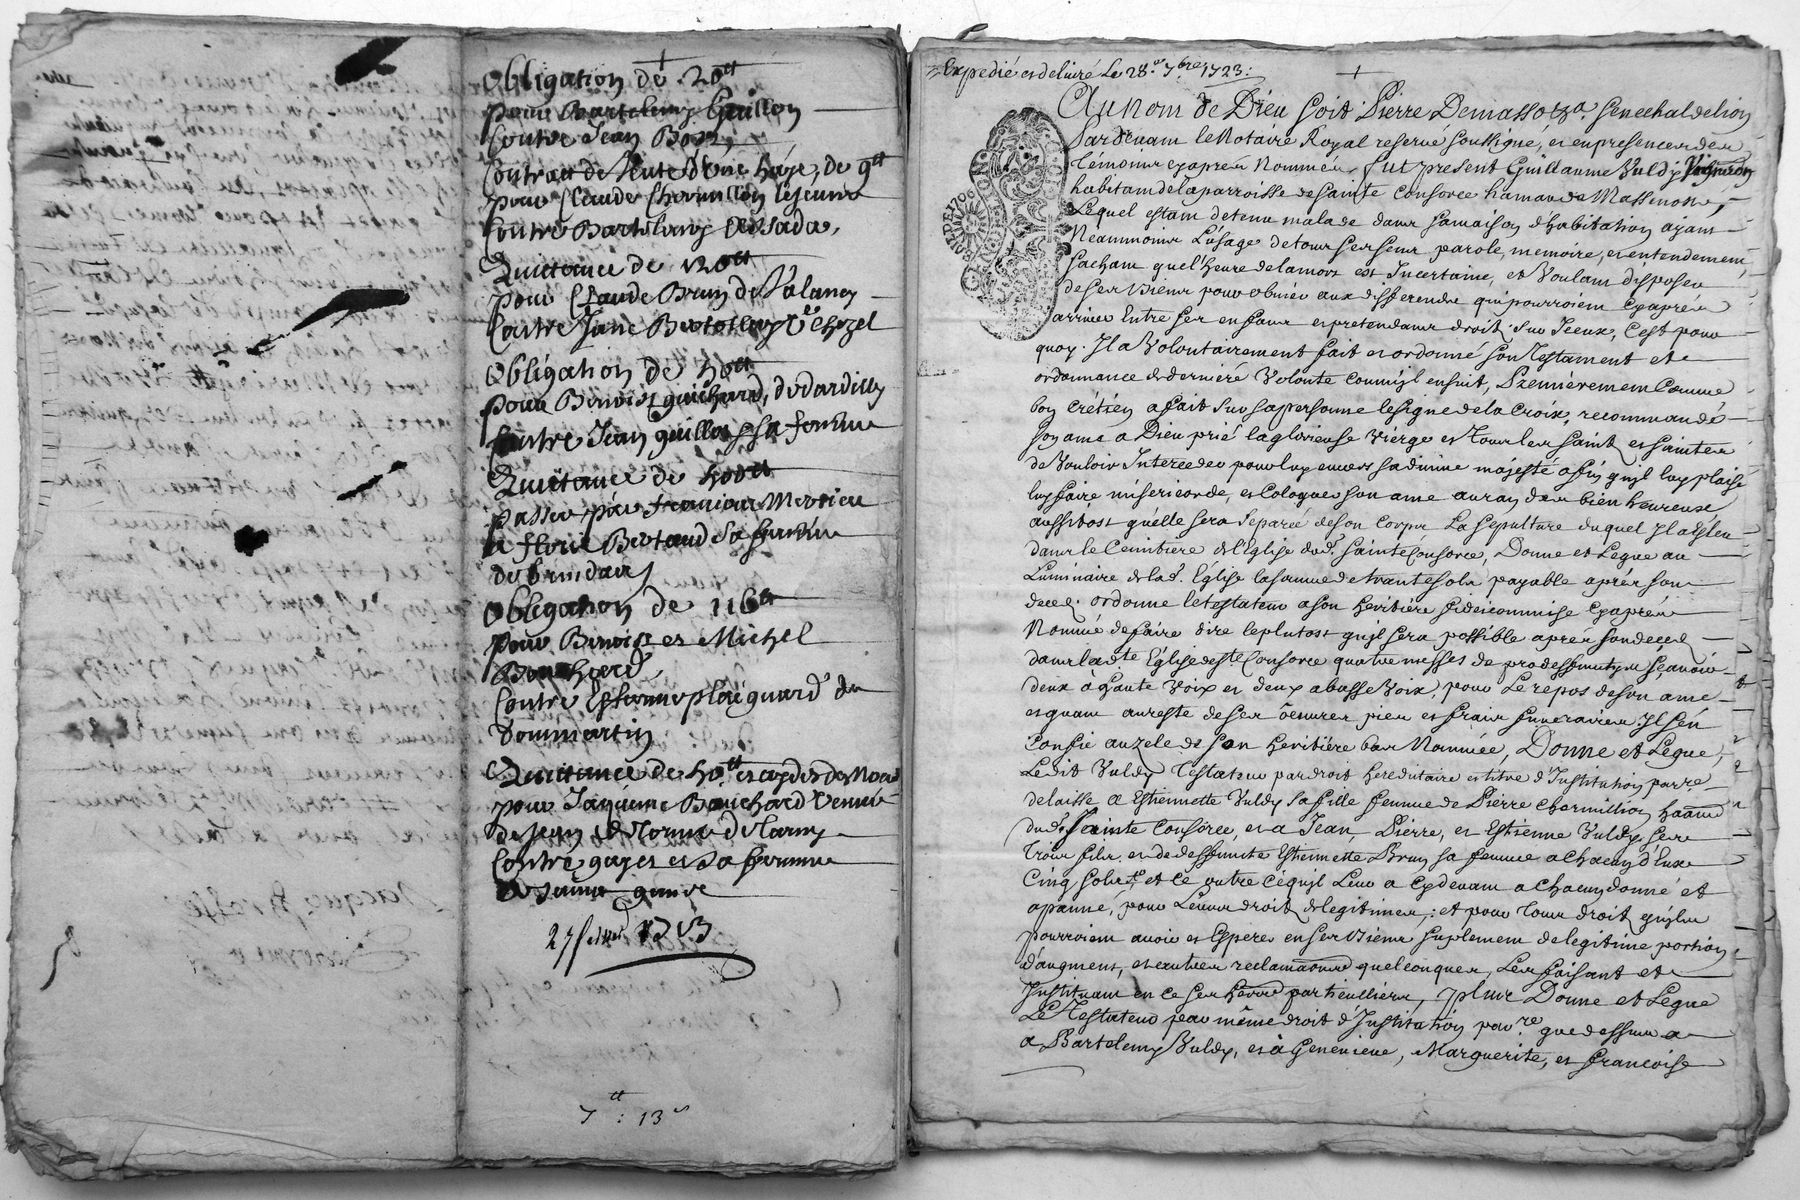 Obligation de 20tt
pour Bartelemy Guillon
Contre Jean
Contract de Vente d'une haye, de 9tt
pour Claude Chermillon lejeune
Contre Bartelemy
Quittance de 120tt
pour Claude Brun de
Contre
Obligation de 40tt
pour Benoist guichard, dedardilly
Contre Jean guillot & sa femme
Quittance de 400tt
passée par francois Mercier
a florie Bertaud Sa femme
de brindas
Obligation de 116tt
pour Benoist et Michel
Bouchard
Contre Estienne plaignard de
Dommartin
Quittance de 40tt et
pour Jaqueme Bouchard Veuve
de Jean
Contre gayet et Sa femme
27 1723
7tt : 13s
Expedié et delivré Le 28.e 7bre 1723:
Au nom de Dieu Soit: Pierre Demasso &a. Senechal de lion
Pardevant le Notaire Royal reservé soussigné, et en presence des
témoins cyapres Nommés, fut present Guillaume Vuldy Vigneron
habitant de la parroisse de sainte Consorce hameau de
Lequel estant detenu malade dans sa maison d'habitation ayant
Neammoins l'usage de tous ses sens, parole, memoire, et entendement,
sachant que l'heure de la mort est Incertaine, et Voulant disposer
de ses Biens pour obvier aux differends qui pourroient cyaprés
arriver Entre ses enfans et pretendans droit sur Iceux, C'est pour
quoy. Il a Volontairement fait et ordonné son Testament et
ordonnance de derniére Volonte comm'il ensuit, Premiérement Comme
bon Crétien a fait sur sa personne le signe de la Croix, recommandé
son ame a Dieu prié la glorieuse Viérge et tous les saints et saintes
de Vouloir Interceder pour luy envers sa divine majesté afin qu'il luy plaise
luy faire misericorde, et Coloquer son ame au rang des bien heureux
aussitost qu'elle sera separée de son Corps La sepulture duquel Il a Esleu
dans le Cemitiere de l'Eglise dud. sainte Consorce, Donne et Legue au
Luminaire de lad. Eglise la somme de trante sols payable aprés son
deced. ordonne le testateur a son heritiére fideicommise cyaprés
Nommé de faire dire le plutost qu'il sera possible aprés son deced
dans ladte Eglise de ste Consorce quatre messes de
deux à haute Voix et deux a basse Voix, pour Le repos de son ame
et quant au reste de ses oeuvres pies et frais funeraires Il s'en
Confie au zele de son heritiére bas Nommée, Donne et Legue,
Ledit Vuldy Testateur par droit hereditaire et titre d'Institution par
delaisse a Estiennette Vuldy sa fille femme de Pierre Chermillion
dud. Sainte Consorce, et a Jean, Pierre, et Estienne Vuldy ses
trois fils et de deffunte Estiennette Brun sa femme a chacun d'eux
Cinq sols et Ce outre Cequ'il Leur a cydevant a chacun donné et
apanné, pour Leurs droits de legitimes; et pour tous droits qu'ils
pourroient avoir et Esperer en ses Biens suplement de legitime portion
d'augment, et autres reclamations quelconques, Les faisant et
Instituant en Ce ses heritiers particulliers, Plus Donne et Legue
Le Testateur par même droit d'Institution par.re que dessus a
a Bartelemy Vuldy, et à Genevieve, Marguerite, et francoise